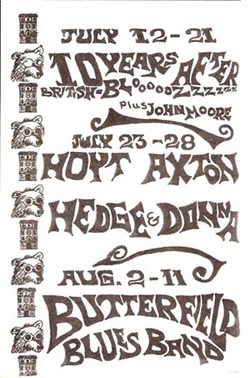 JULY 12-21
10 YEARS AFTER
BRITISH-BLOOOOOZZZZZZZ
PLUS JOHN MOORE
JULY 23-28
HOYT AXTON
HEDGE & DONNA
AUG. 2-11
BUTTERFIELD
BLUES BAND